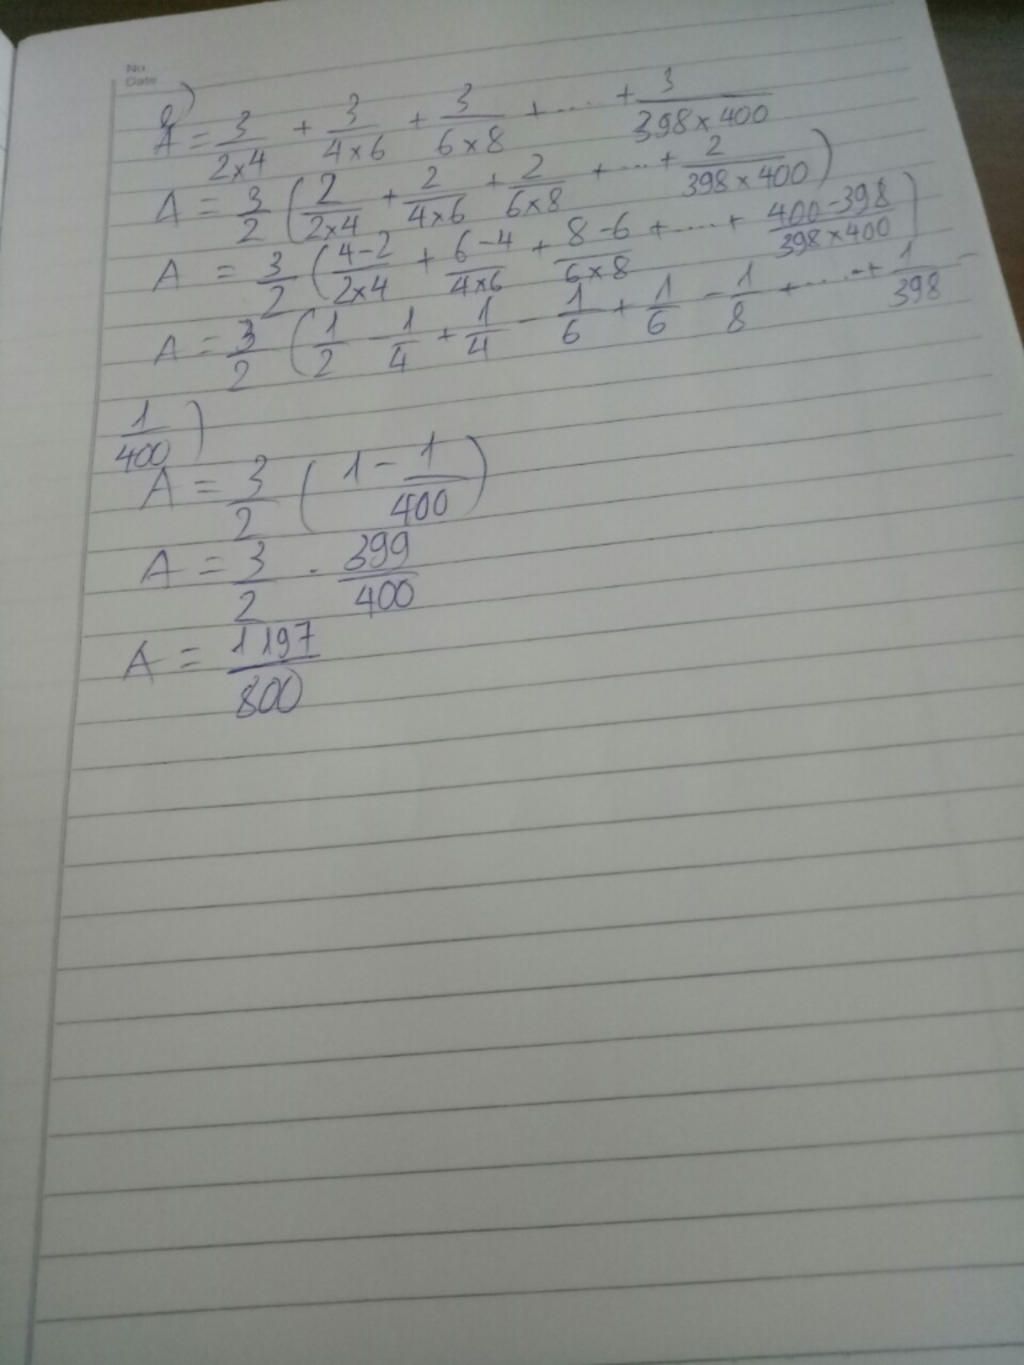 No.
Date
a)
A = 3/2×4 + 3/4×6 + 3/6×8 + .... + 3/398×400
A = 3/2 (2/2×4 + 2/4×6 + 2/6×8 + ... + 2/398×400)
A = 3/2 (4-2/2×4 + 6-4/4×6 + 8-6/6×8 + .... + 400-398/398×400)
A = 3/2 (1/2 - 1/4 + 1/4 - 1/6 + 1/6 - 1/8 + .... + 1/398 -
1/400)
A = 3/2 (1 - 1/400)
A = 3/2 . 399/400
A = 1197/800